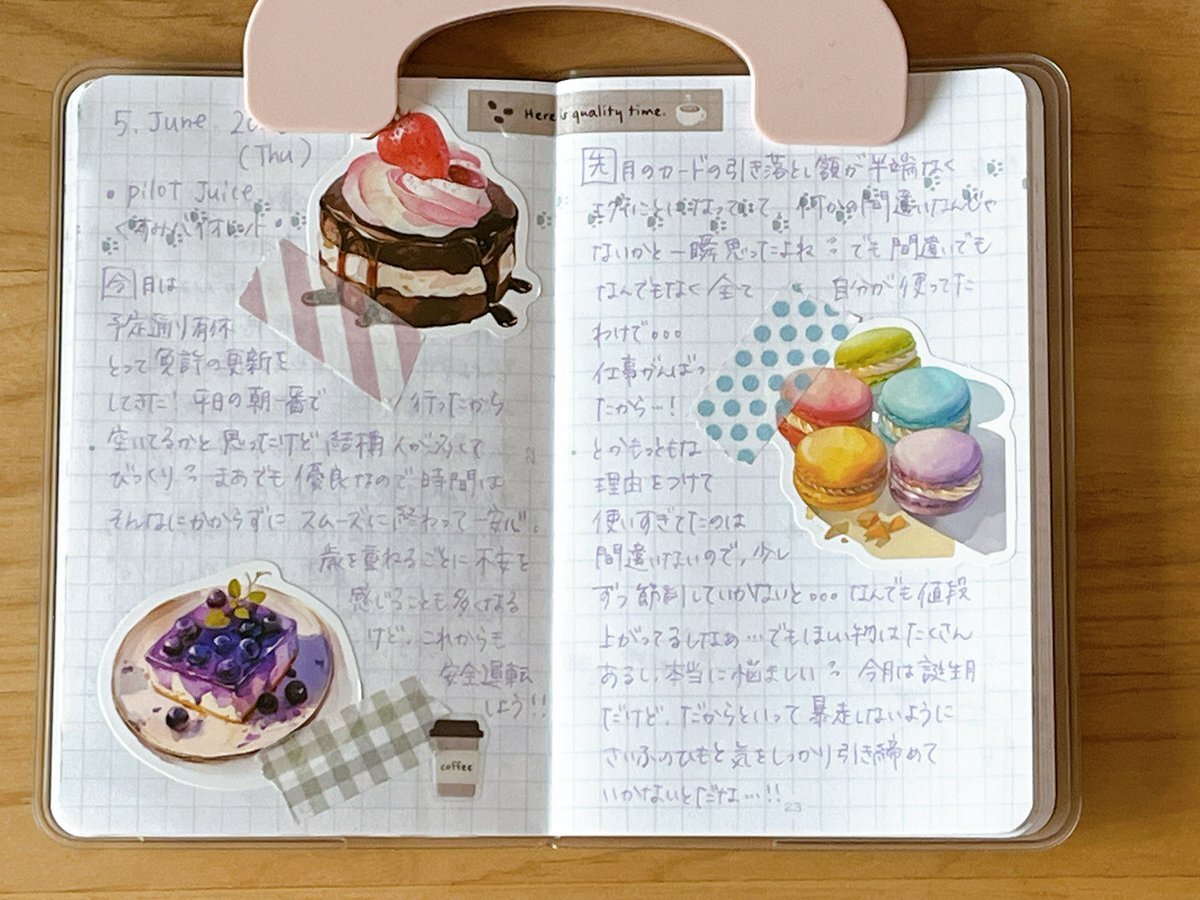 5. June 20
(Thu)
• pilot Juice
くすみバイオレット
今月は
予定通り有休
とって免許の更新を
してきた！平日の朝一番で行ったから
空いてるかと思ったけど結構人が多くて
びっくり まあでも優良なので時間は
そんなにかからずにスムーズに終わって一安心。
歳を重ねるごとに不安を
感じることも多くなる
けど、これからも
安全運転
しよう!!
coffee
Here is quality time.
先月のカードの引き落とし額が半端なく
エグいことになってて、何かの間違いなんじゃ
ないかと一瞬思ったよね でも間違いでも
なんでもなく全て自分が使ってた
わけで。。。
仕事がんばっ
たから…！
とかもっともな
理由をつけて
使いすぎてたのは
間違いないので、少し
ずつ節制していかないと。。。なんでも値段
上がってるしなぁ…でもほしい物はたくさん
あるし、本当に悩ましい 今月は誕生月
だけど、だからといって暴走しないように
さいふのひもと気をしっかり引き締めて
いかないとだな…!!
23